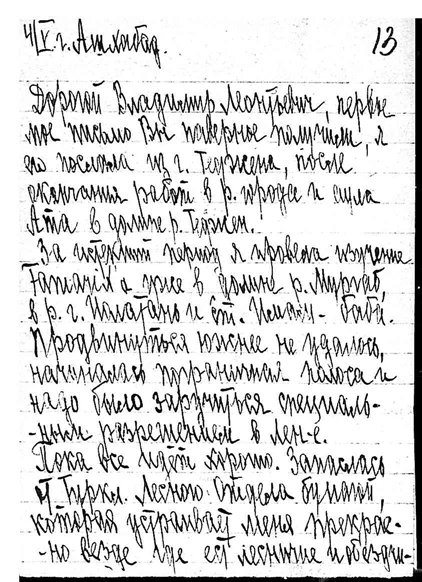 4/V. г. Ашхабад.
13
Дорогой Владимир Леонтьевич, первое
мое письмо Вы наверное получили, я
его послала из г. Теджена, после
окончания работ в р. города и аула
Ата в долине р. Теджен.
За истекший период я провела изучение
уже в долине р. Мургаб,
в р. г. Иолатань и ст. Имам-баба.
Продвинуться южнее не удалось,
начиналась пограничная полоса и
надо было заручиться специаль-
-ным разрешением в Лен-е.
Пока все идет хорошо. Запаслась
от Туркм. Лесного Отдела бумагой,
которая устраивает меня прекрас-
-но везде где есть лесничие и объездчи-